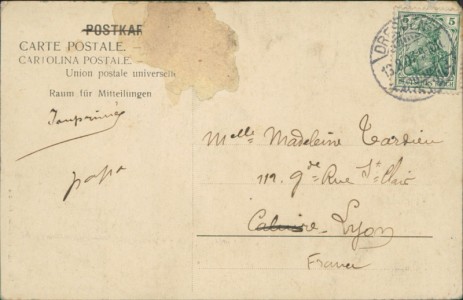 POSTKAR
CARTE POSTALE. —
CARTOLINA POSTALE
Union postale universel
Raum für Mitteilungen
Imprimé
papa
DRESDEN
5
Melle Madeleine Tardieu
119. Gde Rue St Clair
Caluire Lyon
France